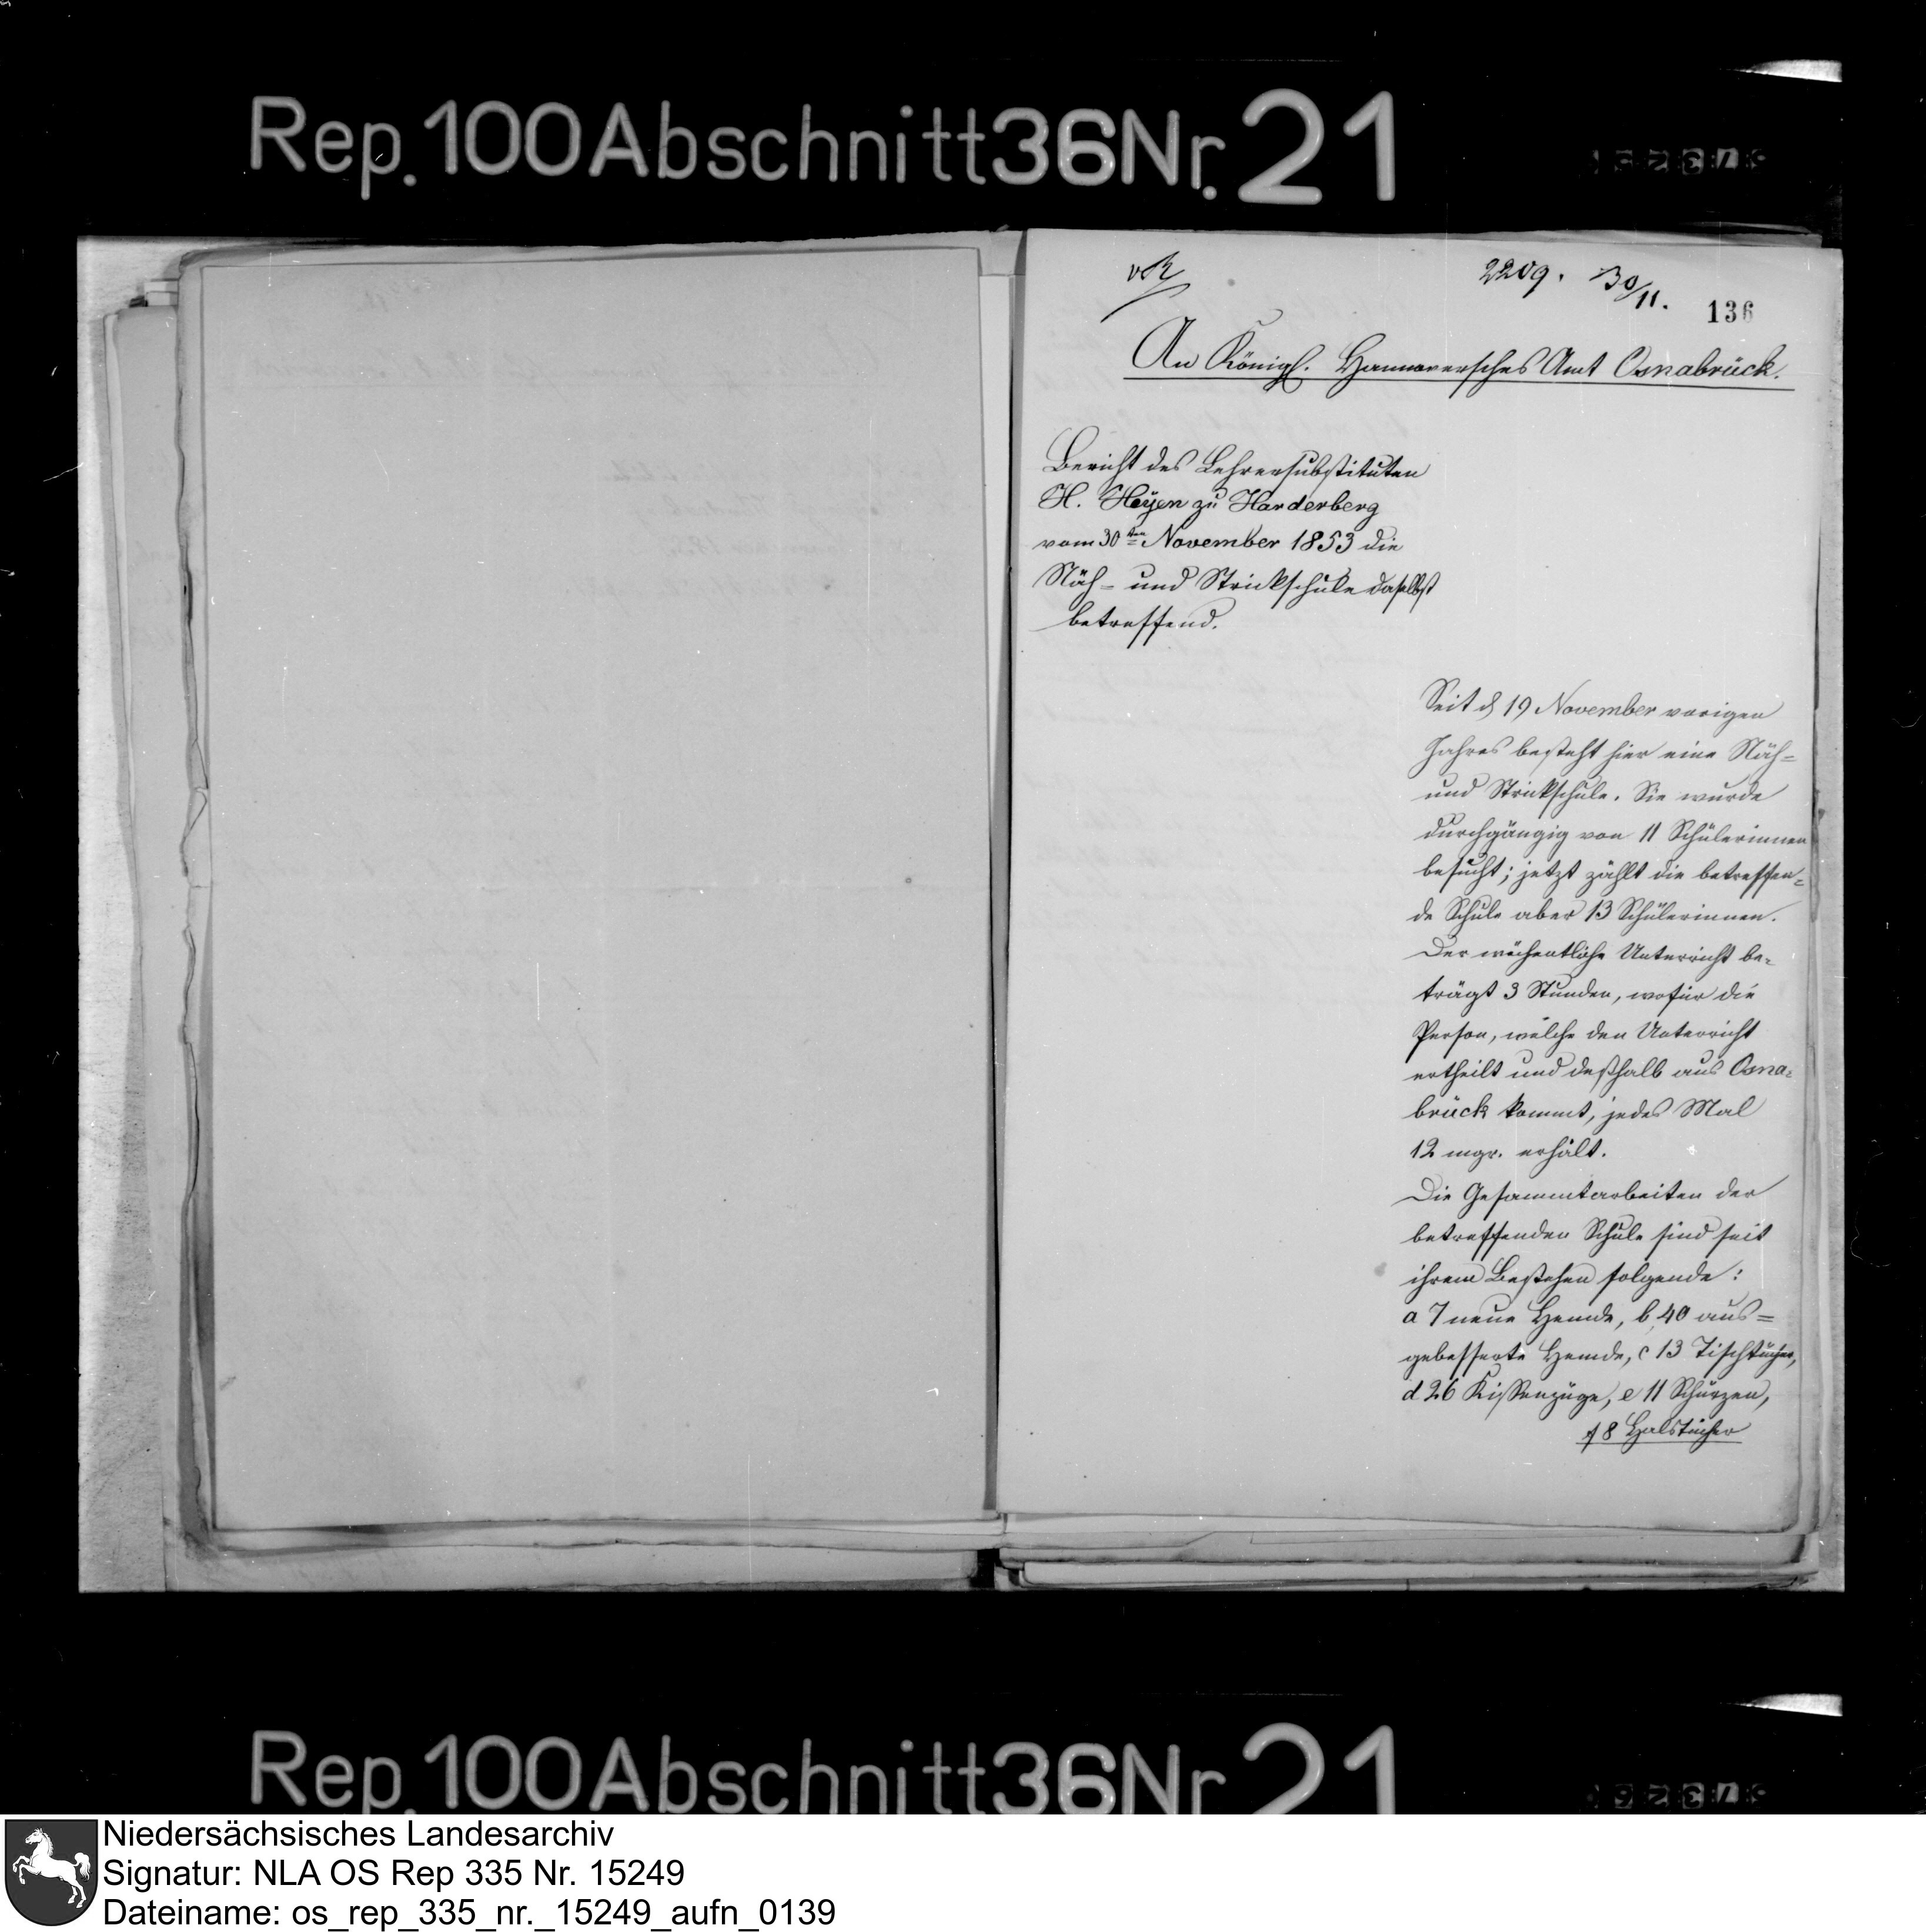 Rep. 100 Abschnitt 36 Nr. 21
2209. 30/11.
136
An Königl. Hannoversches Amt Osnabrück.
Bericht des Lehrersubstituten
H. Heyen zu Harderberg
vom 30ten November 1853 die
Näh- und Strickschule daselbst
betreffend.
Seit d 19 November vorigen
Jahres besteht hier eine Näh=
und Strickschule. Sie wurde
durchgängig von 11 Schülerinnen
besucht; jetzt zählt die betreffen=
de Schule aber 13 Schülerinnen.
Der wöchentliche Unterricht be=
trägt 3 Stunden, wofür die
Person, welche den Unterricht
ertheilt und deßhalb aus Osna=
brück kommt, jedes Mal
12 mgr. erhält.
Die Gesammtarbeiten der
betreffenden Schule sind seit
ihrem Bestehen folgende:
a 7 neue Hemde, b, 40 aus=
gebesserte Hemde, c 13 Tischtücher,
d 26 Kissenzüge, e 11 Schürzen,
f 8 Halstücher
Rep. 100 Abschnitt 36 Nr. 21
Niedersächsisches Landesarchiv
Signatur: NLA OS Rep 335 Nr. 15249
Dateiname: os_rep_335_nr._15249_aufn_0139